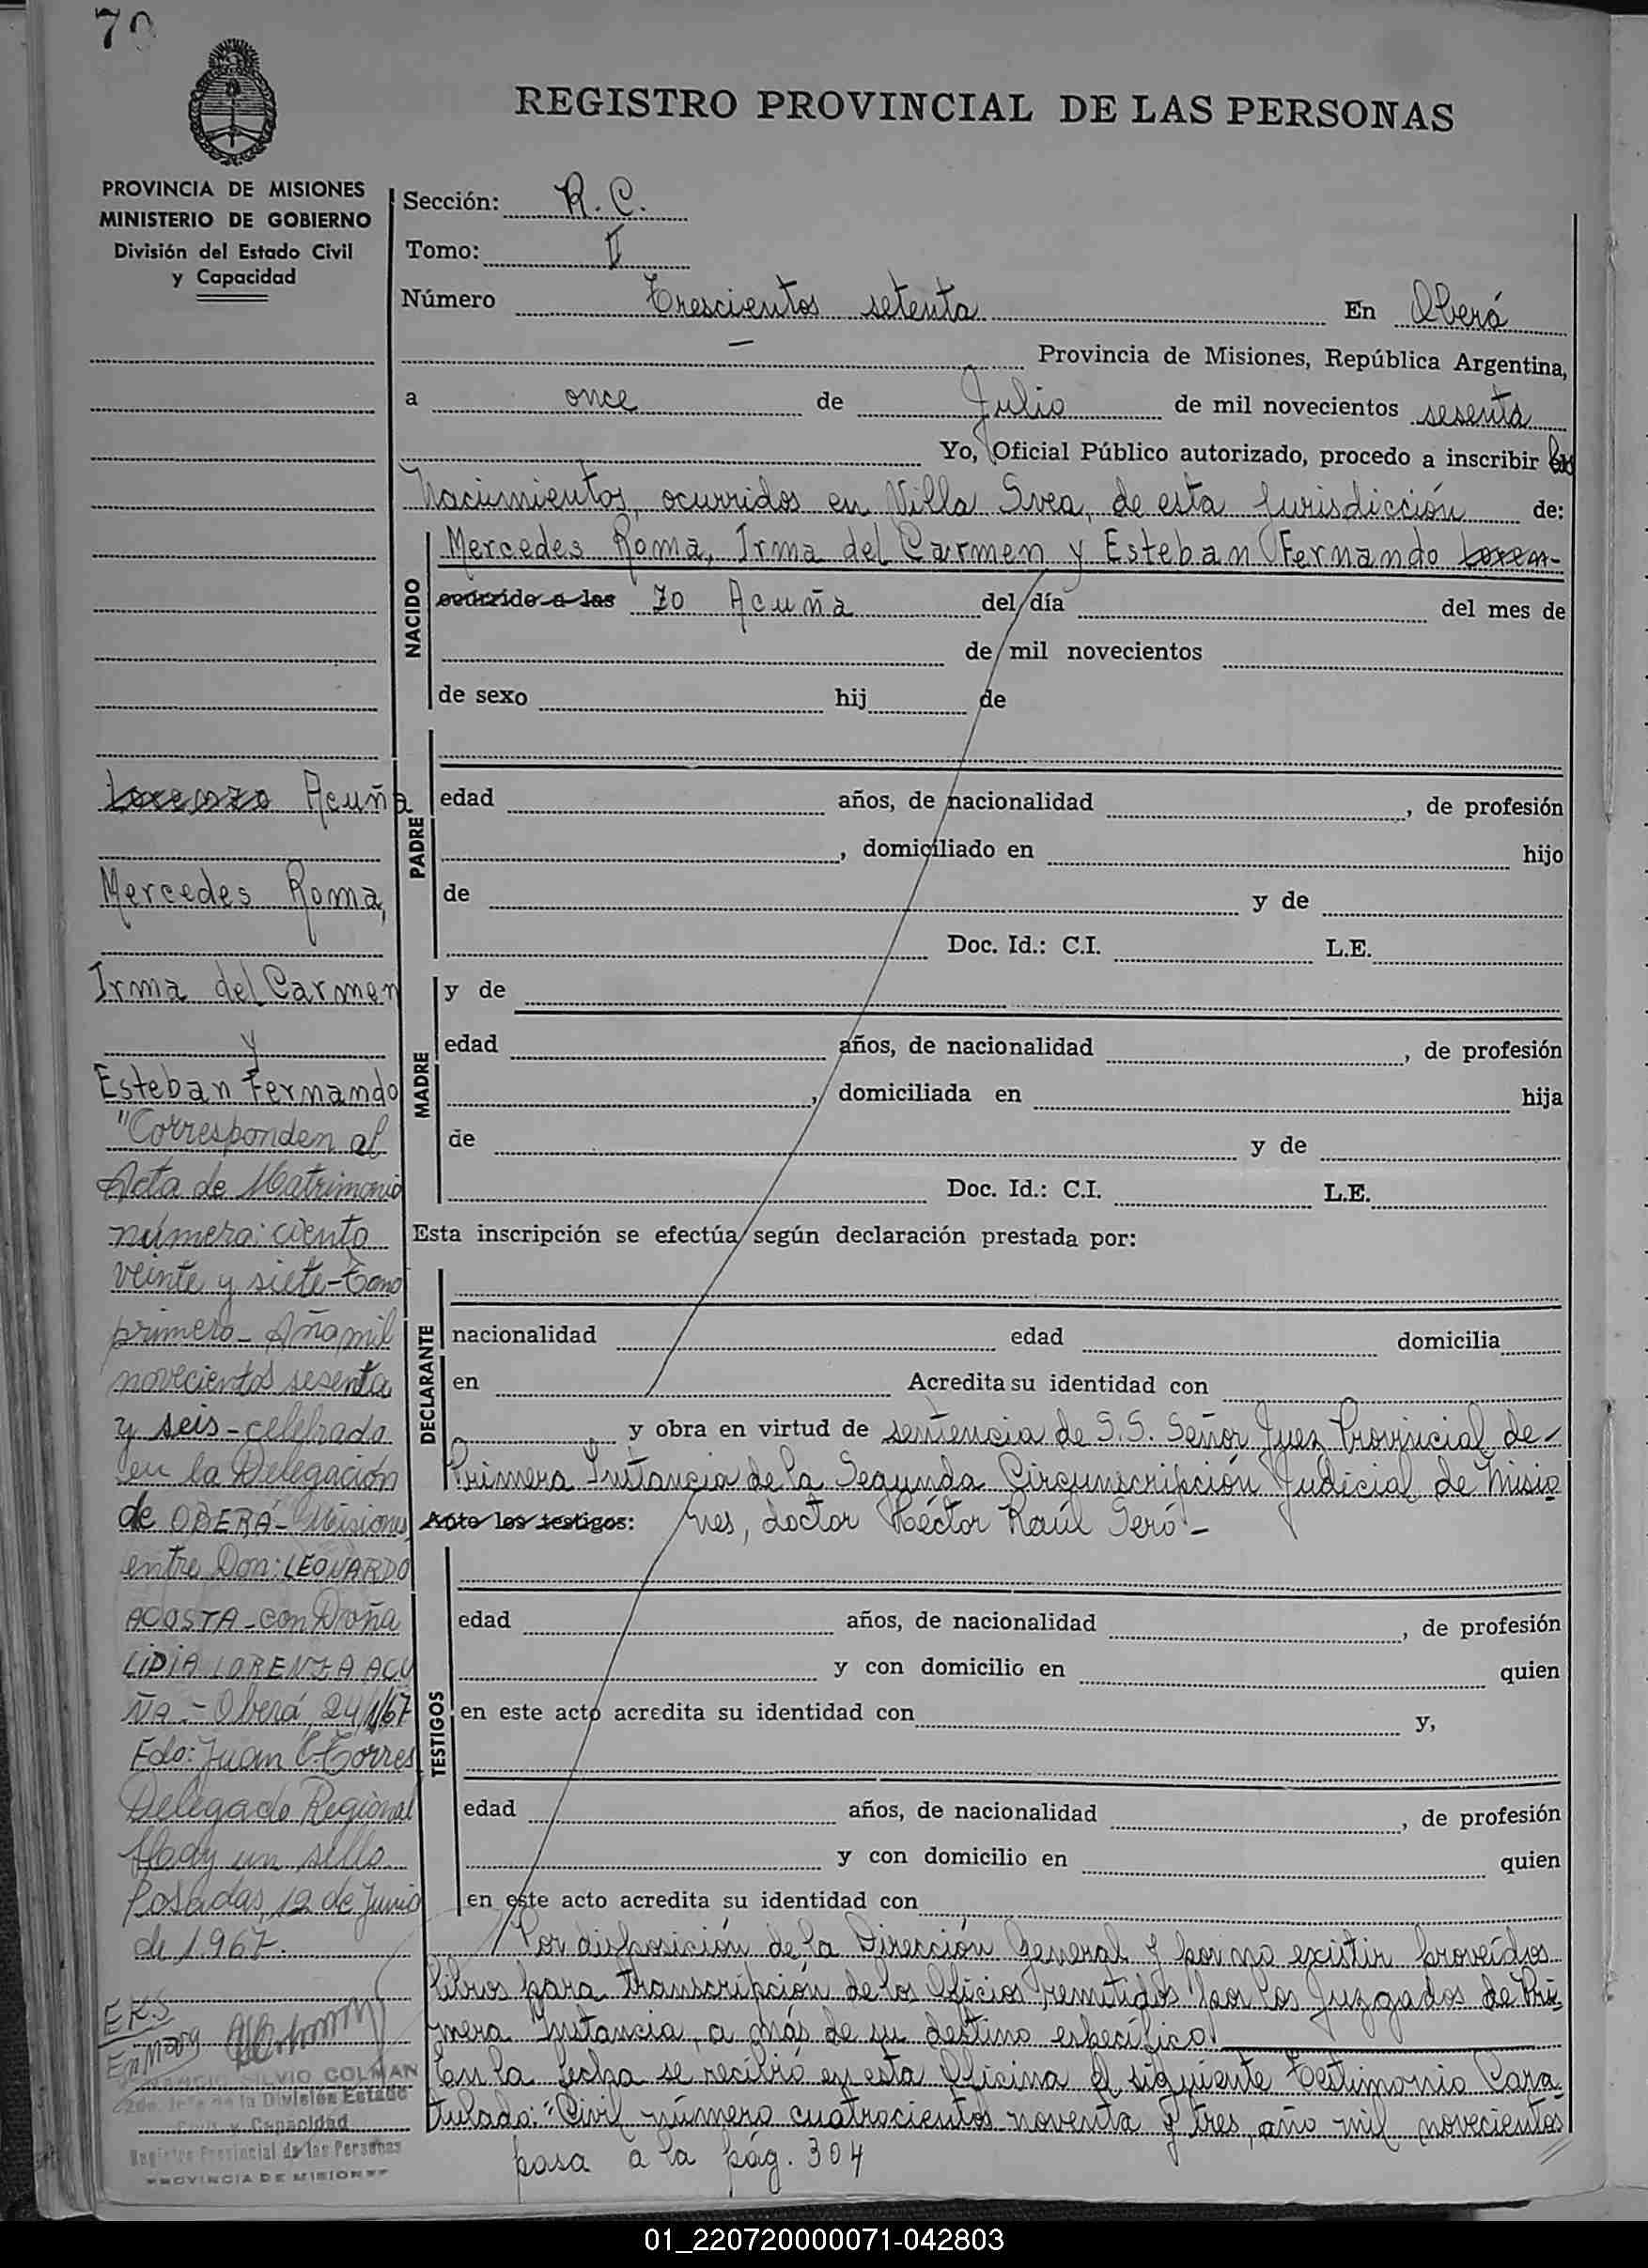 70
REGISTRO PROVINCIAL DE LAS PERSONAS
PROVINCIA DE MISIONES
MINISTERIO DE GOBIERNO
División del Estado Civil
y Capacidad
Sección: R. C.
Tomo: II
Número Trescientos setenta En Oberá
Provincia de Misiones, República Argentina,
a once de Julio de mil novecientos sesenta
Yo, Oficial Público autorizado, procedo a inscribir los
nacimientos, ocurridos en Villa Svea, de esta Jurisdicción de:
NACIDO
Mercedes Roma, Irma del Carmen y Esteban Fernando Loren-
ocurrido a las zo Acuña del día del mes de
de mil novecientos
de sexo hij de
PADRE
edad años, de nacionalidad , de profesión
, domiciliado en hijo
de y de
Doc. Id.: C.I. L.E.
MADRE
y de
edad años, de nacionalidad , de profesión
, domiciliada en hija
de y de
Doc. Id.: C.I. L.E.
Esta inscripción se efectúa según declaración prestada por:
DECLARANTE
nacionalidad edad domicilia
en Acredita su identidad con
y obra en virtud de sentencia de S.S. Señor Juez Provincial de
Primera Instancia de la Segunda Circunscripción Judicial de Misio
Ante los testigos: nes, doctor Héctor Raúl Seró -
TESTIGOS
edad años, de nacionalidad , de profesión
y con domicilio en quien
en este acto acredita su identidad con y,
edad años, de nacionalidad , de profesión
y con domicilio en quien
en este acto acredita su identidad con
Por disposición de la Dirección General y por no existir proveídos
libros para transcripción de los Oficios remitidos por los Juzgados de Pri
mera Instancia, a más de su destino específico.
En la fecha se recibió en esta Oficina el siguiente Testimonio Cara
tulado: "Civil número cuatrocientos noventa y tres, año mil novecientos
pasa a la pág. 304
Lorenzo Acuña
Mercedes Roma,
Irma del Carmen
y
Esteban Fernando
"Corresponden al
Acta de Matrimonio
número: ciento
veinte y siete - Tomo
primero - Año mil
novecientos sesenta
y seis - celebrado
en la Delegación
de OBERÁ - Misiones
entre Don: LEONARDO
ACOSTA - con Doña
LIDIA LORENZA ACU
ÑA. - Oberá 24/1/67
Fdo: Juan C. Torres
Delegado Regional
Hay un sello
Posadas, 12 de Junio
de 1.967.
SILVIO COLMAN
2do. Jefe de la División Estado
Civil y Capacidad
Registro Provincial de las Personas
PROVINCIA DE MISIONES
01_220720000071-042803